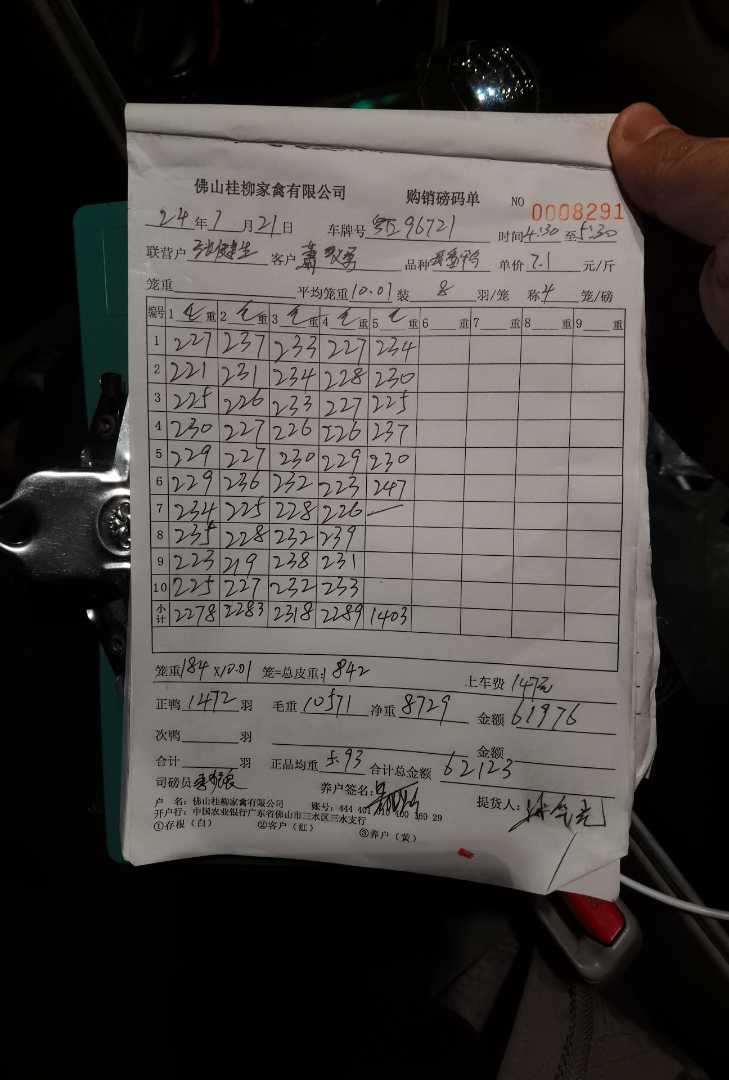 佛山桂柳家禽有限公司 购销磅码单 NO 0008291
24年7月21日 车牌号 96721 时间4:30至5:30
联营户 客户 品种 单价 7.1 元/斤
笼重 平均笼重10.01装 8 羽/笼 称4 笼/磅
编号 1 毛重 2 毛重 3 毛重 4 毛重 5 毛 重 6 重 7 重 8 重 9 重
1 227 237 233 227 234
2 221 231 234 228 230
3 225 226 233 227 225
4 230 227 226 226 237
5 229 227 230 229 230
6 229 236 232 223 247
7 234 225 228 226 —
8 235 228 232 239
9 223 219 238 231
10 225 227 232 233
小计 2278 2283 2318 2289 1403
笼重184×10.01 笼=总皮重:1842 上车费 147元
正鸭 1472 羽 毛重 10571 净重 8729 金额 61976
次鸭 羽 金额
合计 羽 正品均重 5.93 合计总金额 62123
司磅员 养户签名: 提货人:
户 名: 佛山桂柳家禽有限公司 账号: 444 401 010 400 369 29
开户行: 中国农业银行广东省佛山市三水区三水支行
①存根（白） ②客户（红） ③养户（黄）